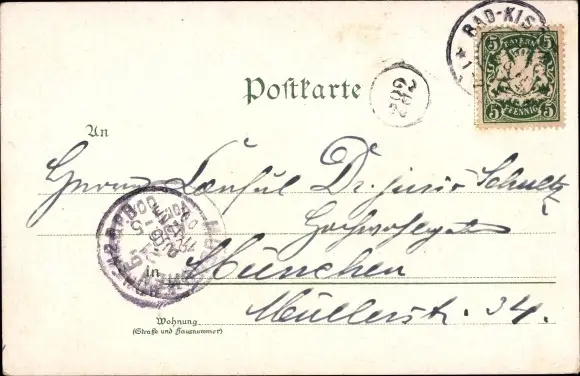 BAD-KIS
5 BAYERN 5
5 PFENNIG 5
Postkarte
An
Herrn Consul Dr. juris Schultz
Hochwohlgeb
in München
Müllerstr. 34.
Wohnung
(Straße und Hausnummer)